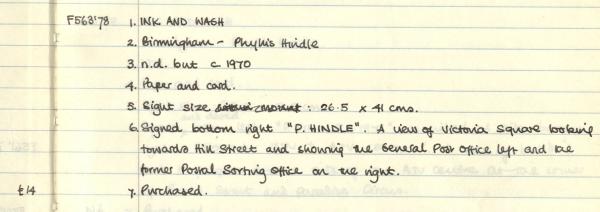 F563'78 1. INK AND WASH
2. Birmingham - Phyllis Hindle
3. n.d. but c 1970
4. Paper and card.
5. Sight size : 26.5 x 41 cms.
6. Signed bottom right "P. HINDLE". A view of Victoria Square looking
towards Hill Street and showing the General Post Office left and the
former Postal Sorting Office on the right.
£14 7. Purchased.